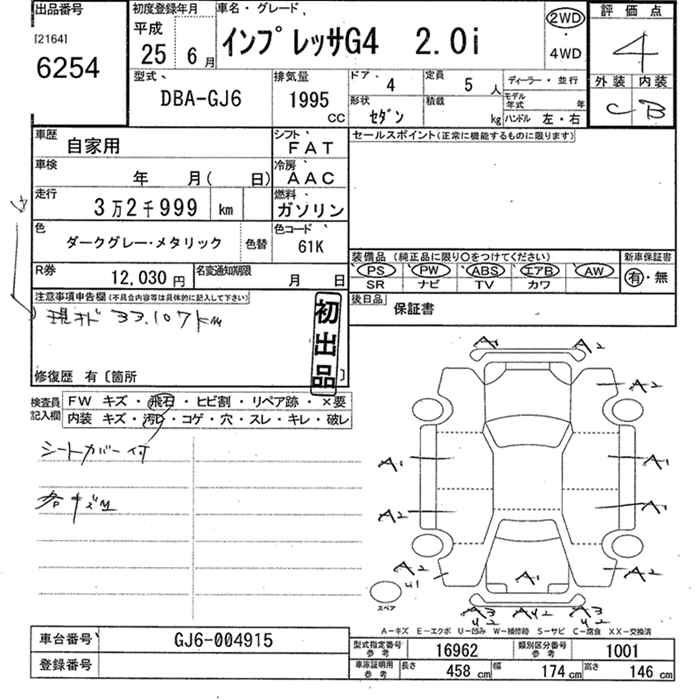 出品番号
[2164]
6254
初度登録年月
平成
25年 6月
車名・グレード
インプレッサG4 2.0i
2WD
・
4WD
評価点
4
外装 内装
C B
型式
DBA-GJ6
排気量
1995
CC
ドア 4
定員 5人
ディーラー・並行
モデル年式 年
形状 セダン
積載 kg
ハンドル 左・右
車歴 自家用
シフト FAT
車検 年 月( 日)
冷房 AAC
走行 3万2千999 km
燃料 ガソリン
色 ダークグレー・メタリック 色替
色コード 61K
R券 12,030円
名変通知期限 月 日
セールスポイント(正常に機能するものに限ります)
装備品 (純正品に限り○をつけてください)
PS PW ABS エアB AW
SR ナビ TV カワ
新車保証書
有・無
後日品 保証書
注意事項申告欄(不具合内容等は具体的に記入して下さい)
現オド 33.107km
初出品
修復歴 有〔箇所 〕
検査員記入欄
FW キズ・飛石・ヒビ割・リペア跡・×要
内装 キズ・汚レ・コゲ・穴・スレ・キレ・破レ
シートカバー付
各キズ
A1 A2
A2
A1 A1
A2 A1
A2 U1 A1 A2
A3 U2 A U2 A3 U2
スペア
A-キズ E-エクボ U-凹み W-補修跡 S-サビ C-腐食 XX-交換済
車台番号 GJ6-004915
登録番号
型式指定番号 参考 16962
類別区分番号 参考 1001
車庫証明用 参考 長さ 458cm 幅 174cm 高さ 146cm